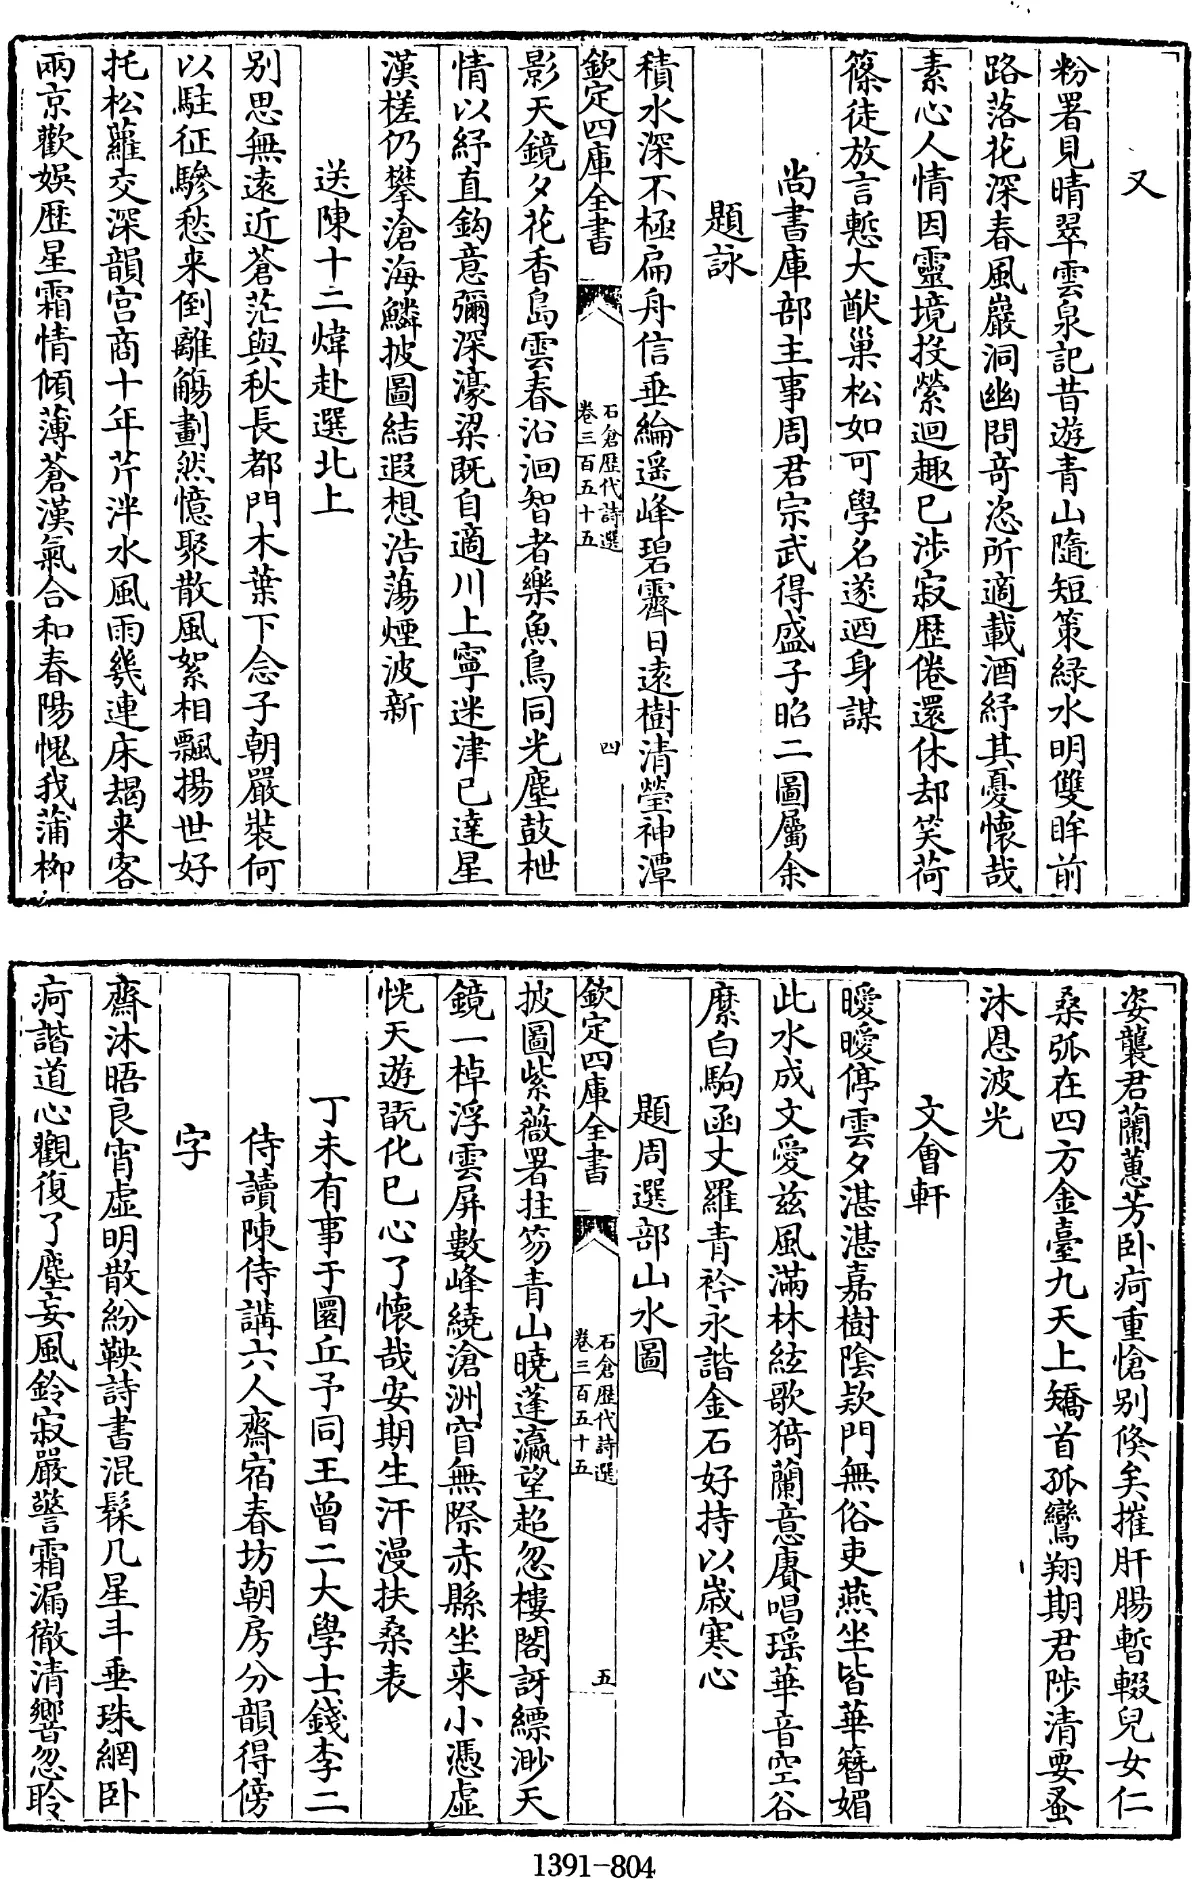 又
粉署見晴翠雲泉記昔遊青山隨短策緑水明雙眸前
路落花深春風巖洞幽問竒恣所適載酒紓其憂懷哉
素心人情因靈境投縈迴趣已渉寂歴倦還休却笑荷
篠徒放言慙大猷巢松如可學名遂迺身謀
尚書庫部主事周君宗武得盛子昭二圖屬余
題詠
積水深不極扁舟信垂綸遥峰碧霽日遠樹清瑩神潭
欽定四庫全書
石倉歴代詩選
卷三百五十五
四
影天鏡夕花香島雲春沿洄智者樂魚鳥同光塵鼓枻
情以紓直鈎意彌深濠梁既自適川上寧迷津已達星
漢槎仍攀滄海鱗披圖結遐想浩蕩煙波新
送陳十二煒赴選北上
别思無遠近蒼茫與秋長都門木葉下念子朝嚴裝何
以駐征驂愁来倒離觴劃然憶聚散風絮相飄揚世好
托松蘿交深韻宫商十年芹泮水風雨幾連床朅来客
兩京歡娯歴星霜情傾薄蒼漢氣合和春陽愧我蒲栁
姿襲君蘭蕙芳卧疴重愴别倐矣摧肝腸暫輟兒女仁
桑弧在四方金臺九天上矯首孤鸞翔期君陟清要蚤
沐恩波光
文會軒
曖曖停雲夕湛湛嘉樹隂欵門無俗吏燕坐皆華簪媚
此水成文愛兹風滿林絃歌猗蘭意賡唱瑶華音空谷
縻白駒函丈羅青衿永諧金石好持以嵗寒心
題周選部山水圖
欽定四庫全書
石倉歴代詩選
卷三百五十五
五
披圖紫薇署拄笏青山曉蓬瀛望超忽樓閣訝縹渺天
鏡一棹浮雲屏數峰繞滄洲窅無際赤縣坐来小憑虚
恍天遊翫化已心了懷哉安期生汗漫扶桑表
丁未有事于圜丘予同王曾二大學士錢李二
侍讀陳侍講六人齋宿春坊朝房分韻得傍
字
齋沐晤良宵虚明散紛鞅詩書混髹几星斗垂珠網卧
疴諧道心觀復了塵妄風鈴寂嚴警霜漏徹清響忽聆
1391-804